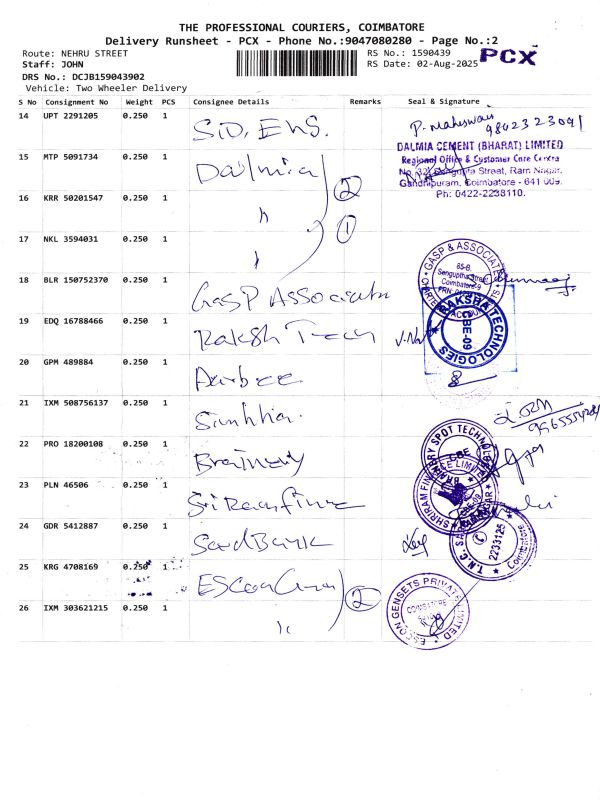 THE PROFESSIONAL COURIERS, COIMBATORE
Delivery Runsheet - PCX - Phone No.:9047080280 - Page No.:2
Route: NEHRU STREET
RS No.: 1590439
PCX
Staff: JOHN
RS Date: 02-Aug-2025
DRS No.: DCJB159043902
Vehicle: Two Wheeler Delivery
S No Consignment No Weight PCS Consignee Details Remarks Seal & Signature
14 UPT 2291205 0.250 1
P. Maheswari
9802323091
DALMIA CEMENT (BHARAT) LIMITED
15 MTP 5091734 0.250 1 Dalmia
Regional Office & Customer Care Centre
Sengupta Street, Ram Nagar,
Gandhipuram, Coimbatore - 641 009.
Ph: 0422-2238110.
2
16 KRR 50201547 0.250 1 "
17 NKL 3594031 0.250 1 "
1
GASP & ASSOCIATES
65-B,
Senguptha Street
Coimbatore-9
18 BLR 150752370 0.250 1 GASP Associates
19 EDQ 16788466 0.250 1 Raksh Tech
RAKSHA TECHNOLOGIES
CBE-09
20 GPM 489884 0.250 1
21 IXM 508756137 0.250 1
22 PRO 18200108 0.250 1 Brainery
BRAINERY SPOT TECHNOLOGY
CBE
23 PLN 46506 0.250 1
SHRIRAM FINANCE LIMITED
24 GDR 5412887 0.250 1
T.N.C.
2233125
Coimbatore
25 KRG 4708169 0.250 1
2
26 IXM 303621215 0.250 1 "
ESCON GENSETS PRIVATE LIMITED
COIMBATORE